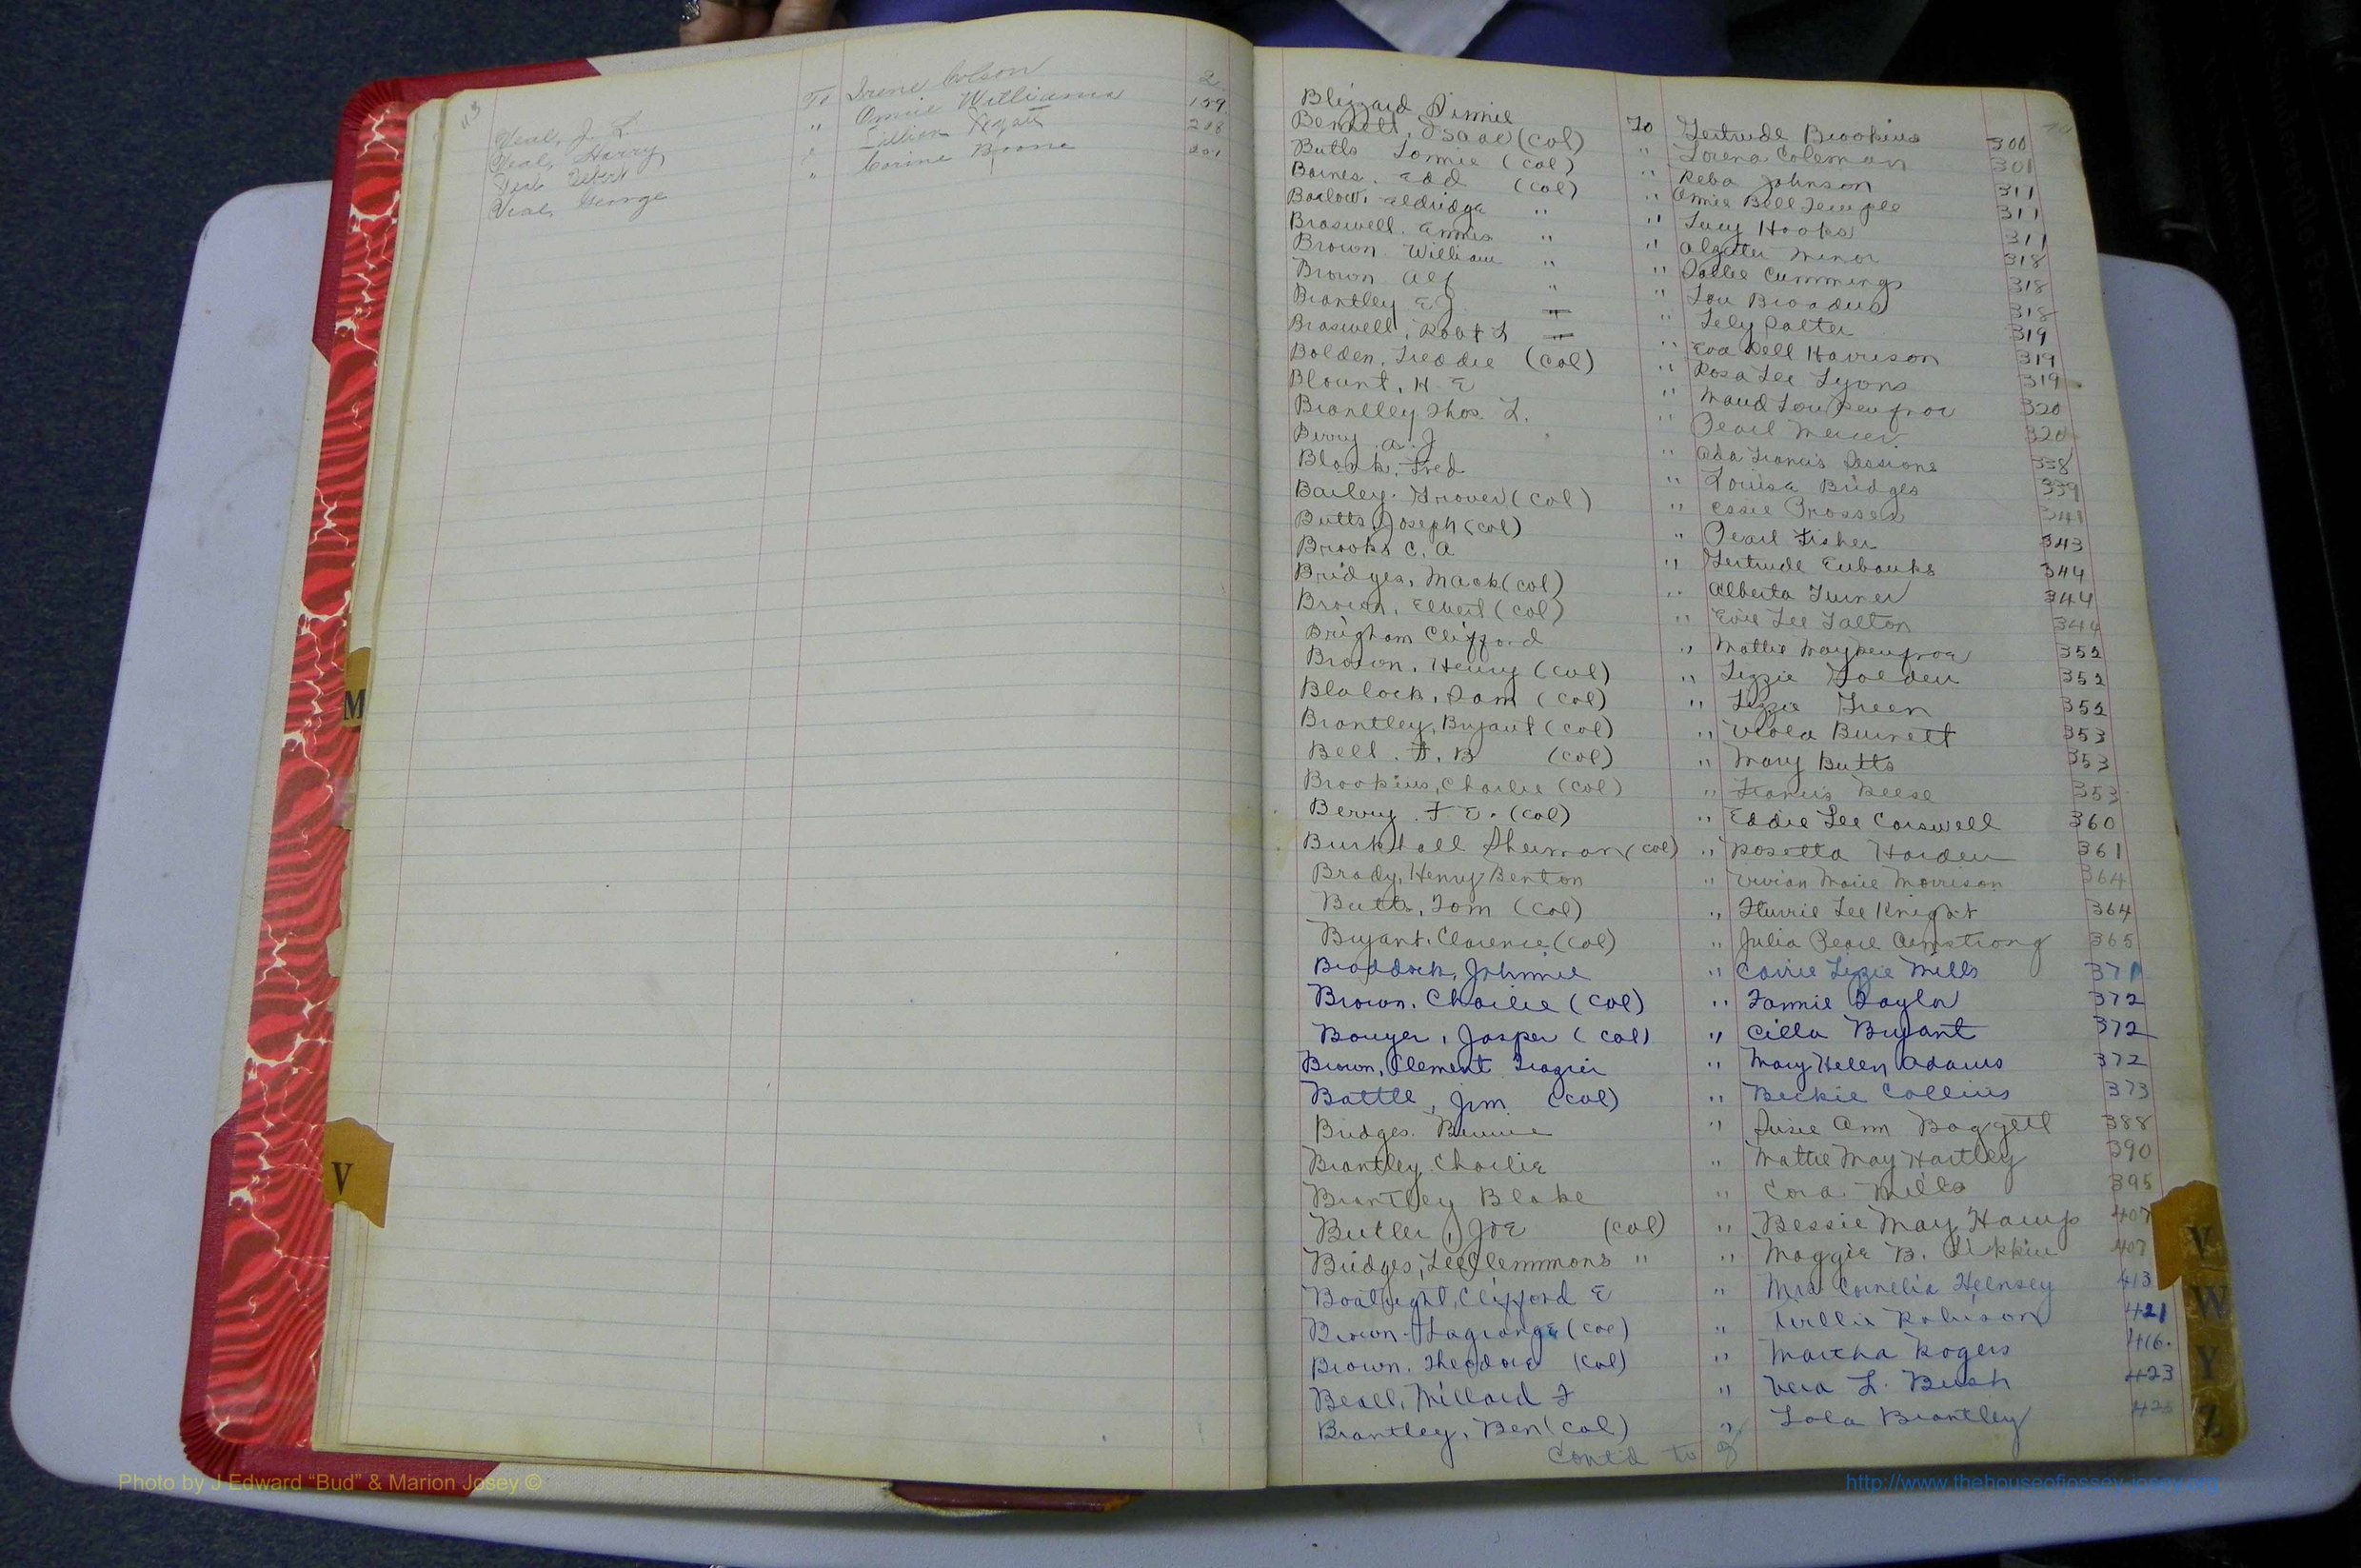 Veal, J. L. To Irene Colson 2
Veal, Harry " Annie Williams 159
Veal " Lillian 208
Veal, George " Corine Boone 201
M
V
Blizzard Dinnie To Gertrude Brookins 300
Bennett, Isaac (Col) " Lorena Coleman 301
Butts Lonnie (Col) " Reba Johnson 311
Baines, Edd (Col) " Annie Bell Temple 311
Barlow, Eldridge " " Lucy Hooks 311
Braswell, Annis " " Minor 318
Brown William " " Dollie Cummings 318
Brown Alf " " Lou Broadus 318
Brantley E J " Lely Salter 319
Braswell, Robt L " Eva Dell Harrison 319
Bolden, Freddie (Col) " Rosa Lee Lyons 319
Blount, H E " Maud Lou Renfroe 320
Brantley Thos. L. " Pearl Mercer 320
Berry, A. J " Ada Francis Sessions 338
Blank, Fred " Louisa Bridges 339
Bailey, Grover (Col) " Essie Prosser 341
Butts, Joseph (Col) " Pearl Fisher 343
Brooks C. A " Gertrude Eubanks 344
Bridges, Mack (Col) " Alberta Turner 344
Brown, Elbert (Col) " Evie Lee Salton 344
Brigham Clifford " Mattie May Renfroe 352
Brown, Henry (Col) " Lizzie Holden 352
Blalock, Sam (Col) " Lizzie Green 352
Brantley, Bryant (Col) " Viola Burnett 353
Bell, F. B (Col) " Mary Butts 353
Brookins, Charlie (Col) " Francis Reese 353
Berry F. E. (Col) " Eddie Lee Carswell 360
Burkhall Sherman (Col) " Rosetta Harden 361
Brady, Henry Benton " Vivian Marie Morrison 364
Butts, Tom (Col) " Flurrie Lee Knight 364
Bryant, Clarence (Col) " Julia Pearl Armstrong 365
Braddock, Johnnie " Carrie Lizzie Mills 371
Brown, Charlie (Col) " Fannie Taylor 372
Bouyer, Jasper (Col) " Cilla Bryant 372
Brown, Clement Frazier " Mary Helen Adams 372
Battle, Jim (Col) " Beckie Collins 373
Bridges, Bennie " Susie Ann Baggett 388
Brantley Charlie " Mattie May Hartley 390
Brantley Blake " Cora Mills 395
Butler, Joe (Col) " Bessie May Hamp 407
Bridges, Lee Clemmons " " Maggie B. 407
Boatright, Clifford E " Mrs Cornelia Helmsey 413
Brown, Lagrange (Col) " Willie Robinson 421
Brown, Theodore (Col) " Martha Rogers 416.
Beall, Millard F " Vera L. Bush 423
Brantley, Ben (Col) " Lola Brantley 425
Cont'd to 9
V
W
Y
Z
Photo by J Edward “Bud” & Marion Josey ©
http://www.thehouseofjossey-josey.org